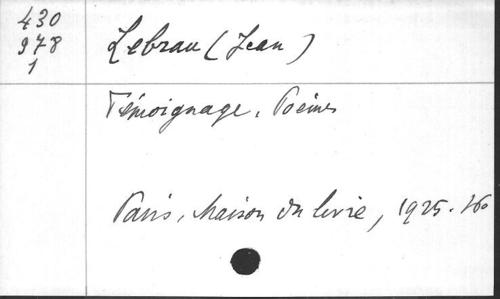 430
978
1
Lebrau (Jean)
Témoignage. Poèmes
Paris, Maison du livre, 1925. 16o